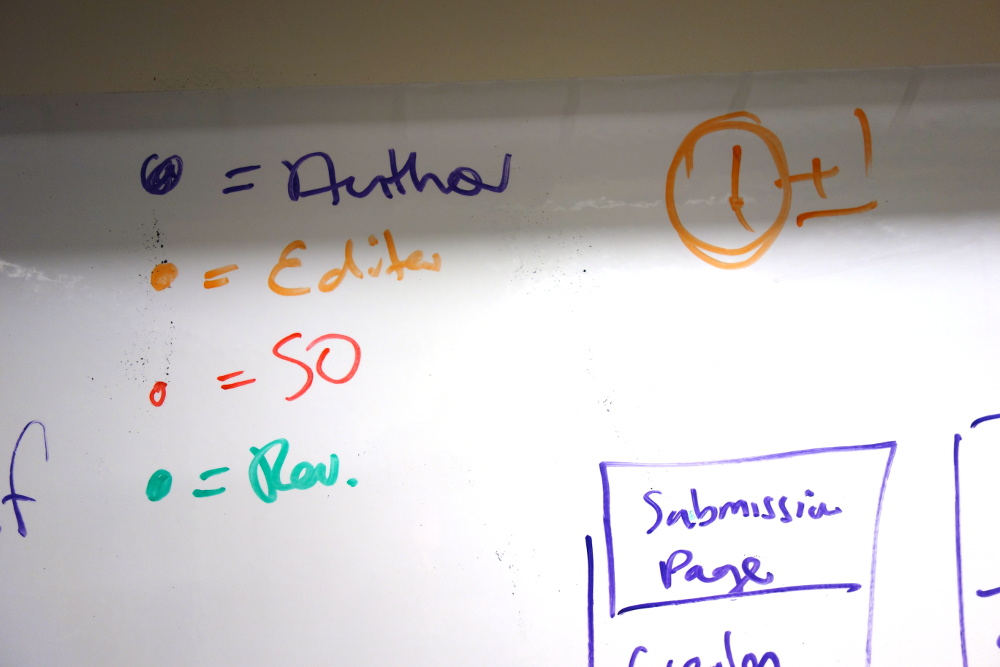 = Author
= Editor
= SO
= Rev.
1 + 1
f
Submission
Page